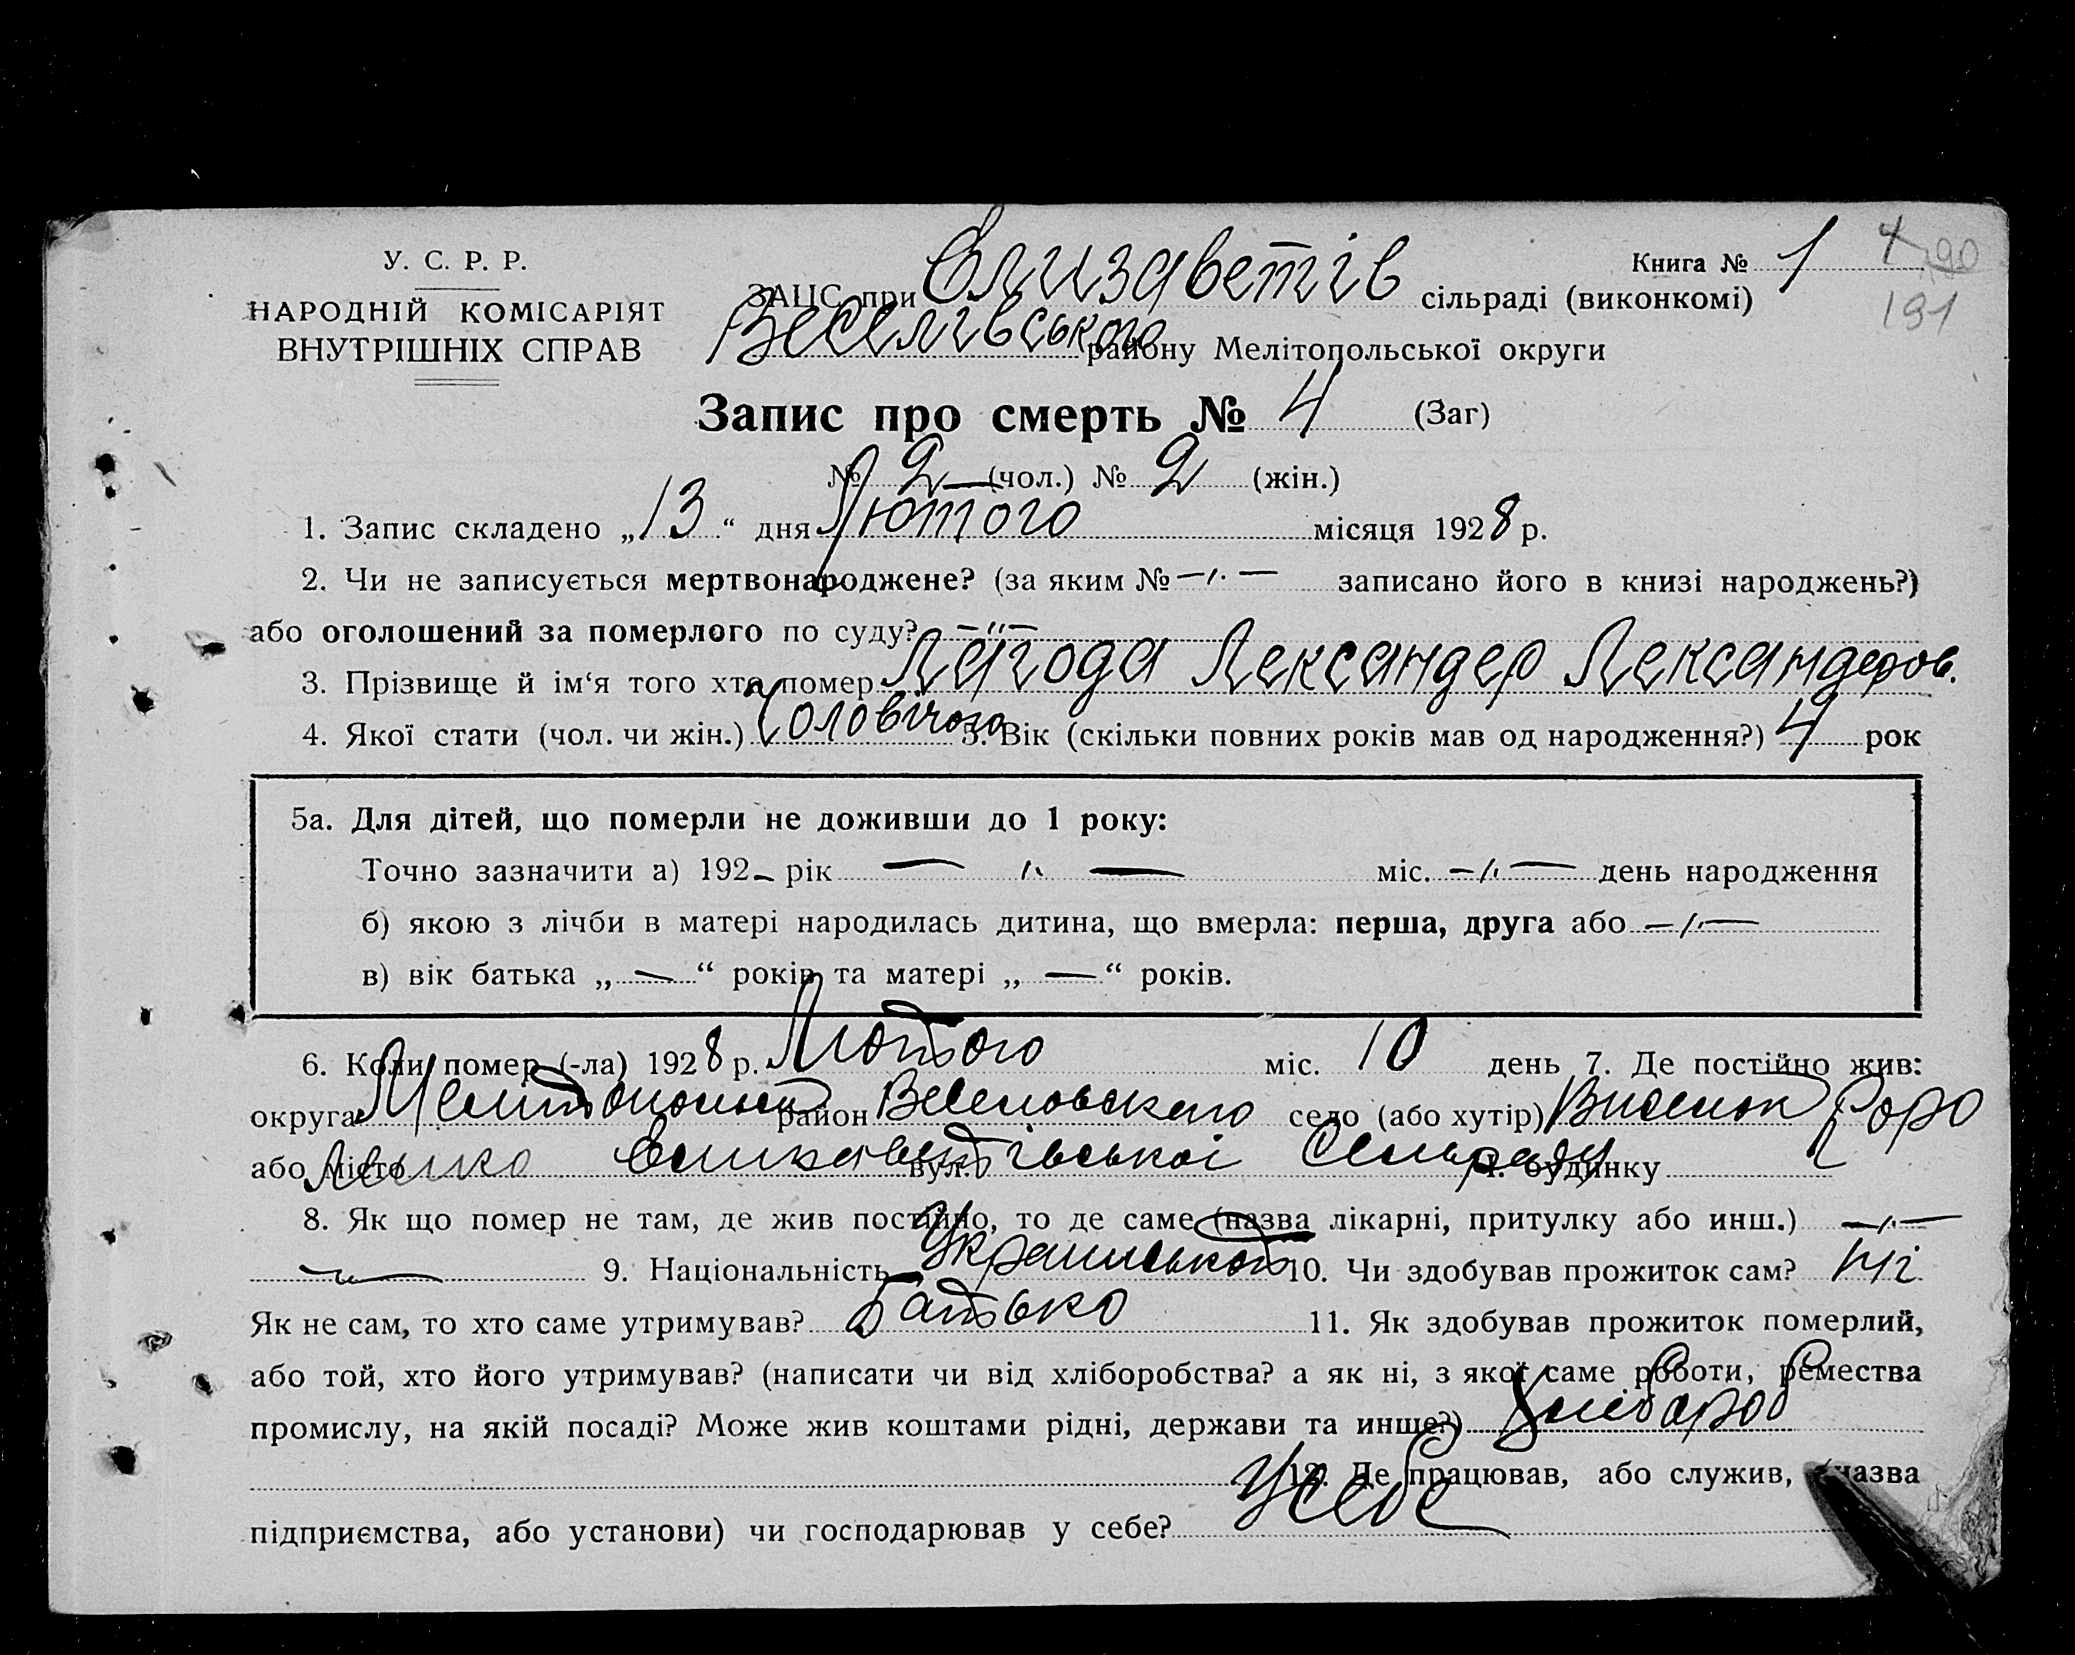 У. С. Р. Р.
НАРОДНІЙ КОМІСАРІЯТ
ВНУТРІШНІХ СПРАВ
Книга № 1
4 190
191
ЗАЦС при Єлизаветів сільраді (виконкомі)
Веселівського району Мелітопольської округи
Запис про смерть № 4 (Заг)
№ 2 (чол.) № 2 (жін.)
1. Запис складено „13“ дня Лютого місяця 1928 р.
2. Чи не записується мертвонароджене? (за яким № —〃— записано його в книзі народжень?)
або оголошений за померлого по суду? —〃—
3. Прізвище й ім‘я того хто помер Лягода Лександер Лександеров.
4. Якої стати (чол. чи жін.) Чоловічого 5. Вік (скільки повних років мав од народження?) 4 рок
5а. Для дітей, що померли не доживши до 1 року:
Точно зазначити а) 192– рік —〃— міс. —〃— день народження
б) якою з лічби в матері народилась дитина, що вмерла: перша, друга або —〃—
в) вік батька „—“ років та матері „—“ років.
6. Коли помер (-ла) 1928 р. Лютого міс. 10 день 7. Де постійно жив:
округа район Веселовского село (або хутір) Виселок
або місто вул. Сельради д. будинку
8. Як що помер не там, де жив постійно, то де саме (назва лікарні, притулку або инш.) —〃—
—〃— 9. Національність Украинськой 10. Чи здобував прожиток сам? ні
Як не сам, то хто саме утримував? Батько 11. Як здобував прожиток померлий,
або той, хто його утримував? (написати чи від хліборобства? а як ні, з якої саме роботи, ремества
промислу, на якій посаді? Може жив коштами рідні, держави та инше?) Хлібароб
12. Де працював, або служив, (назва
підприємства, або установи) чи господарював у себе? У себе